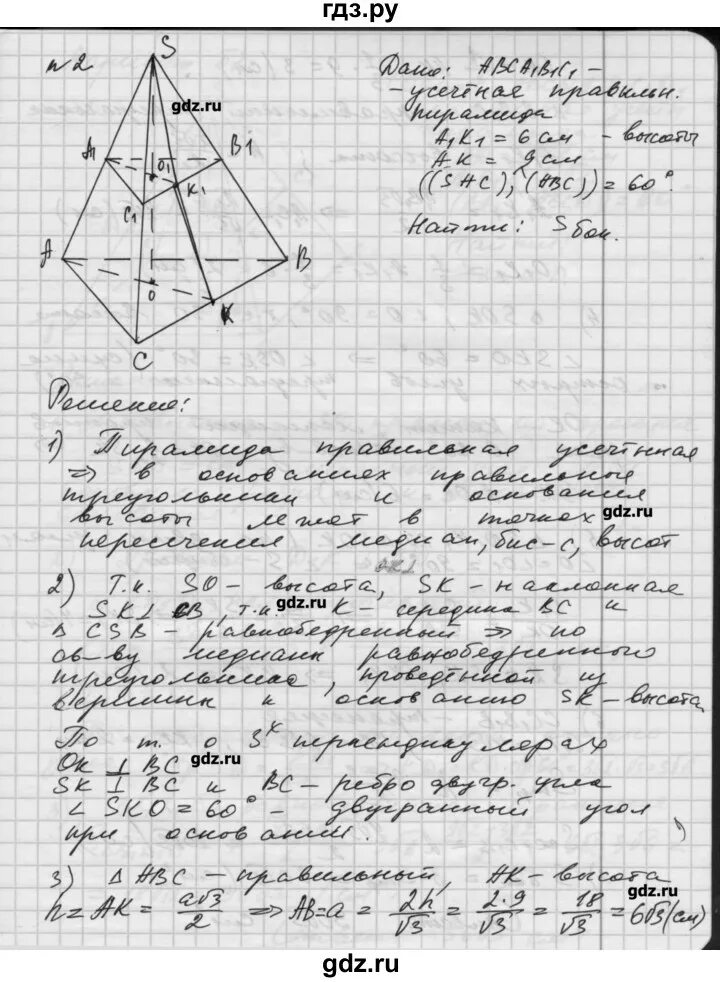 гдз.ру
n2
S
gdz.ru
A1
B1
O1
K1
C1
A
B
O
K
C
Дано: ABCA1B1C1 –
– усечённая правильн.
пирамида
A1K1 = 6 см – высоты
AK = 9 см
((SAC), (ABC)) = 60°.
Найти: Sбок.
Решение:
1) Пирамида правильная усечённая
⇒ в основаниях правильные
треугольники и основания
gdz.ru
высоты лежат в точках
пересечения медиан, бис-с, высот
2) Т.к. SO – высота, SK – наклонная
SK⊥CB, т.к. K – середина BC и
gdz.ru
△CSB – равнобедренный ⇒ по
св-ву медианы равнобедренного
треугольника, проведённой из
вершины к основанию SK – высота.
По т. о 3х перпендикулярах
OK ⊥ BC
gdz.ru
SK ⊥ BC и BC – ребро двугр. угла
∠SKO = 60° – двугранный угол
при основании.
3) △ABC – правильный, AK – высота
gdz.ru
h = AK = a√3/2 ⇒ AB = a = 2h/√3 = 2·9/√3 = 18/√3 = 6√3 (см)
gdz.ru